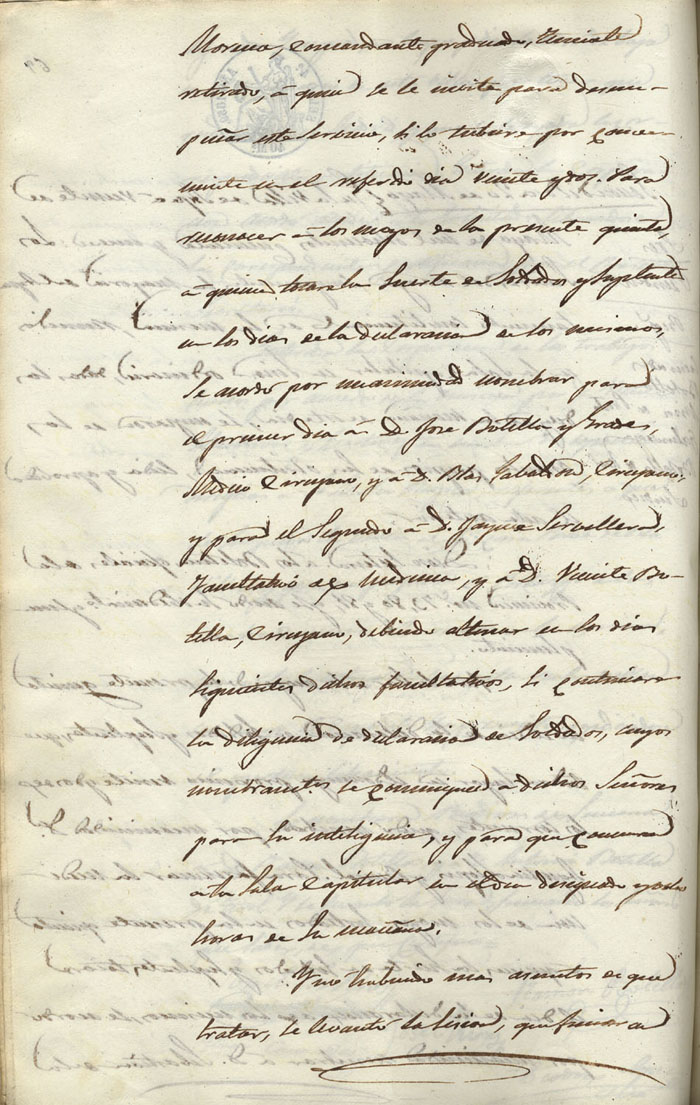 Moreno, Comandante graduado, Teniente
retirado, á quien se le invita para desem-
peñar este servicio, si lo tubiere por conve-
niente en el referido dia veinte y dos. Para
reconocer á los mozos de la presente quinta,
á quienes toca la suerte de Soldados y Suplentes
en los dias de la declaracion de los mismos,
se acordó por unanimidad nombrar para
el primer dia á D. Jose Botella y
Medico Cirujano, y á D. Blas Cirujano,
y para el Segundo á D. Jayme Servellera,
Facultativo de Medicina, y á D. Vicente Bo-
tella, Cirujano, debiendo alternar en los dias
siguientes dichos facultativos, si continuara
la diligencia de declaracion de Soldados, cuyos
nombramtos. se comuniquen á dichos Señores
para su inteligencia, y para que concurran
á la Sala Capitular en el dia designado y
horas de su mañana.
Y no habiendo mas asuntos de que
tratar, se levantó la sesion, que firmaron